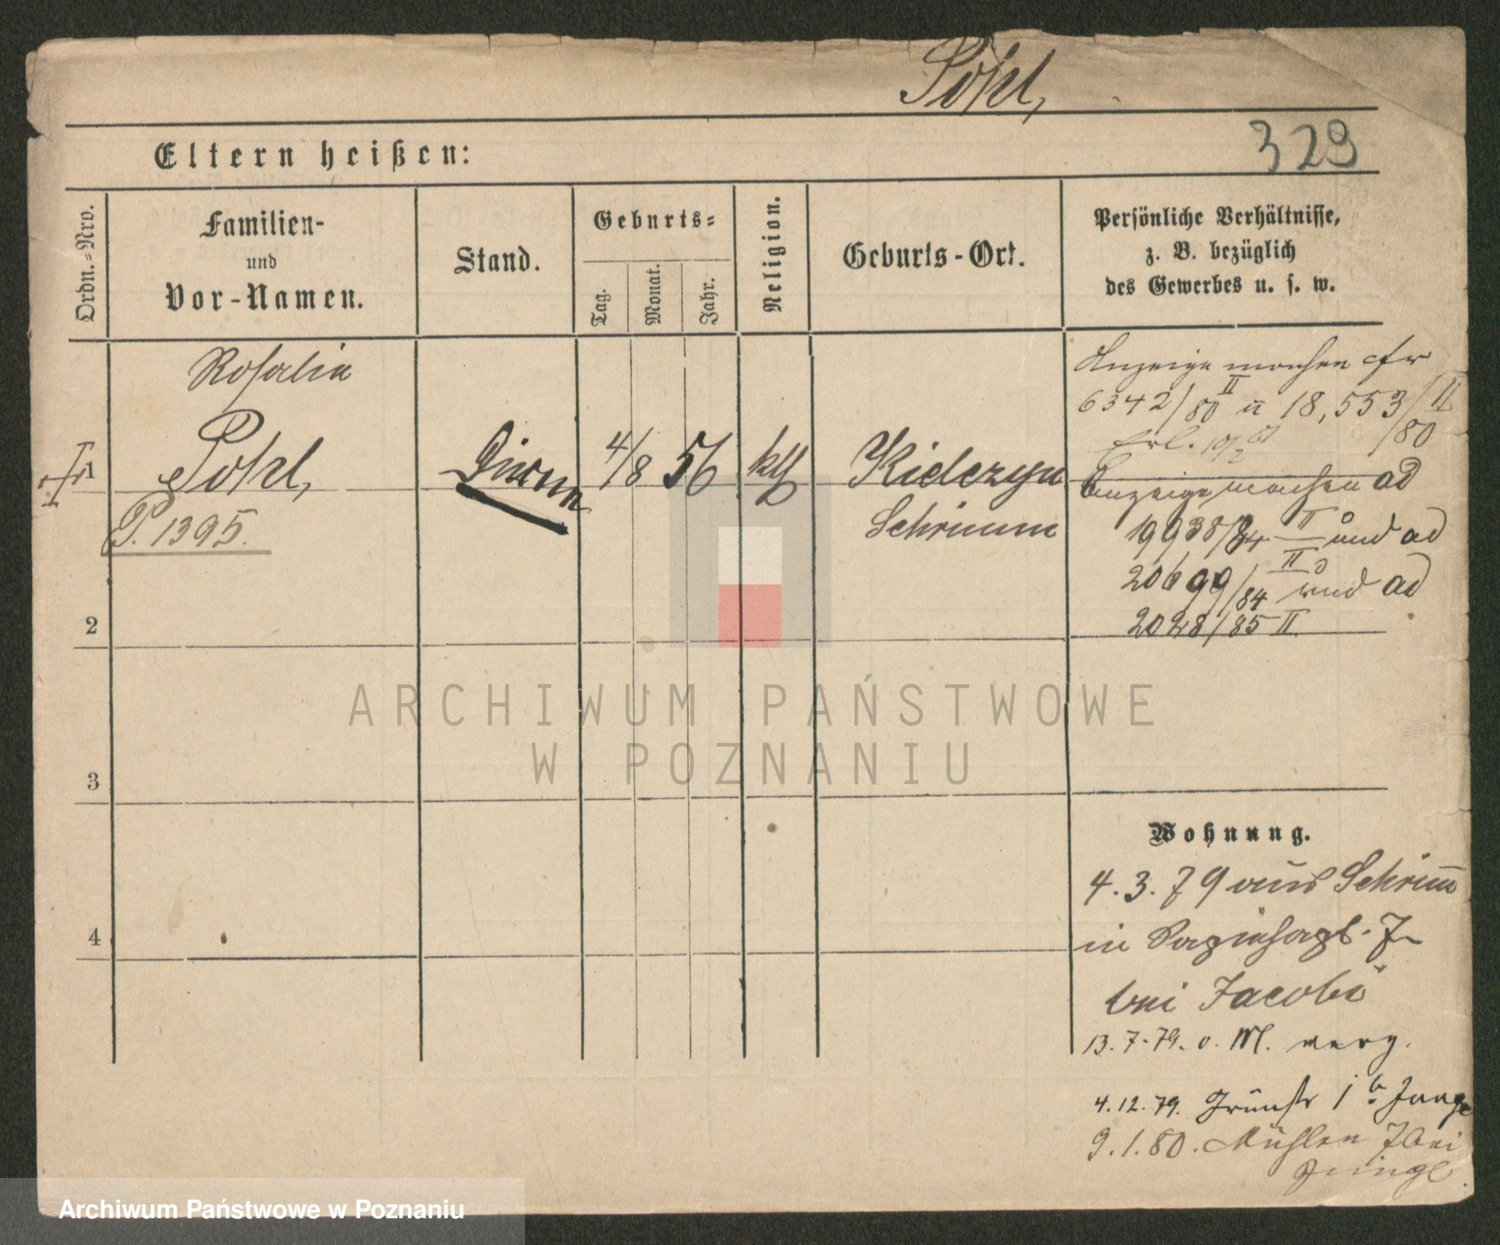 Pohl,
329
Eltern heißen:
Ordn.-Nro.
Familien-
und
Vor-Namen.
Stand.
Geburts-
Tag.
Monat.
Jahr.
Religion.
Geburts-Ort.
Persönliche Verhältnisse,
z. B. bezüglich
des Gewerbes u. s. w.
1
Rosalia
Pohl,
P. 1395.
Dirne
4/8 56
kth
Kielczyn
Schrimm
Anzeige machen cfr
6342/80 II u 18,553/80 II
Erl.
Anzeige machen ad
19938/84 II und ad
20699/84 II und ad
2028/85 II
2
3
4
Wohnung.
4.3.79 aus Schrimm
in 7
bei Jacobi
13.7.79. v. M. verz.
4.12.79. 1 b.
9.1.80. Mühlen 7 bei
ARCHIWUM PAŃSTWOWE
W POZNANIU
Archiwum Państwowe w Poznaniu